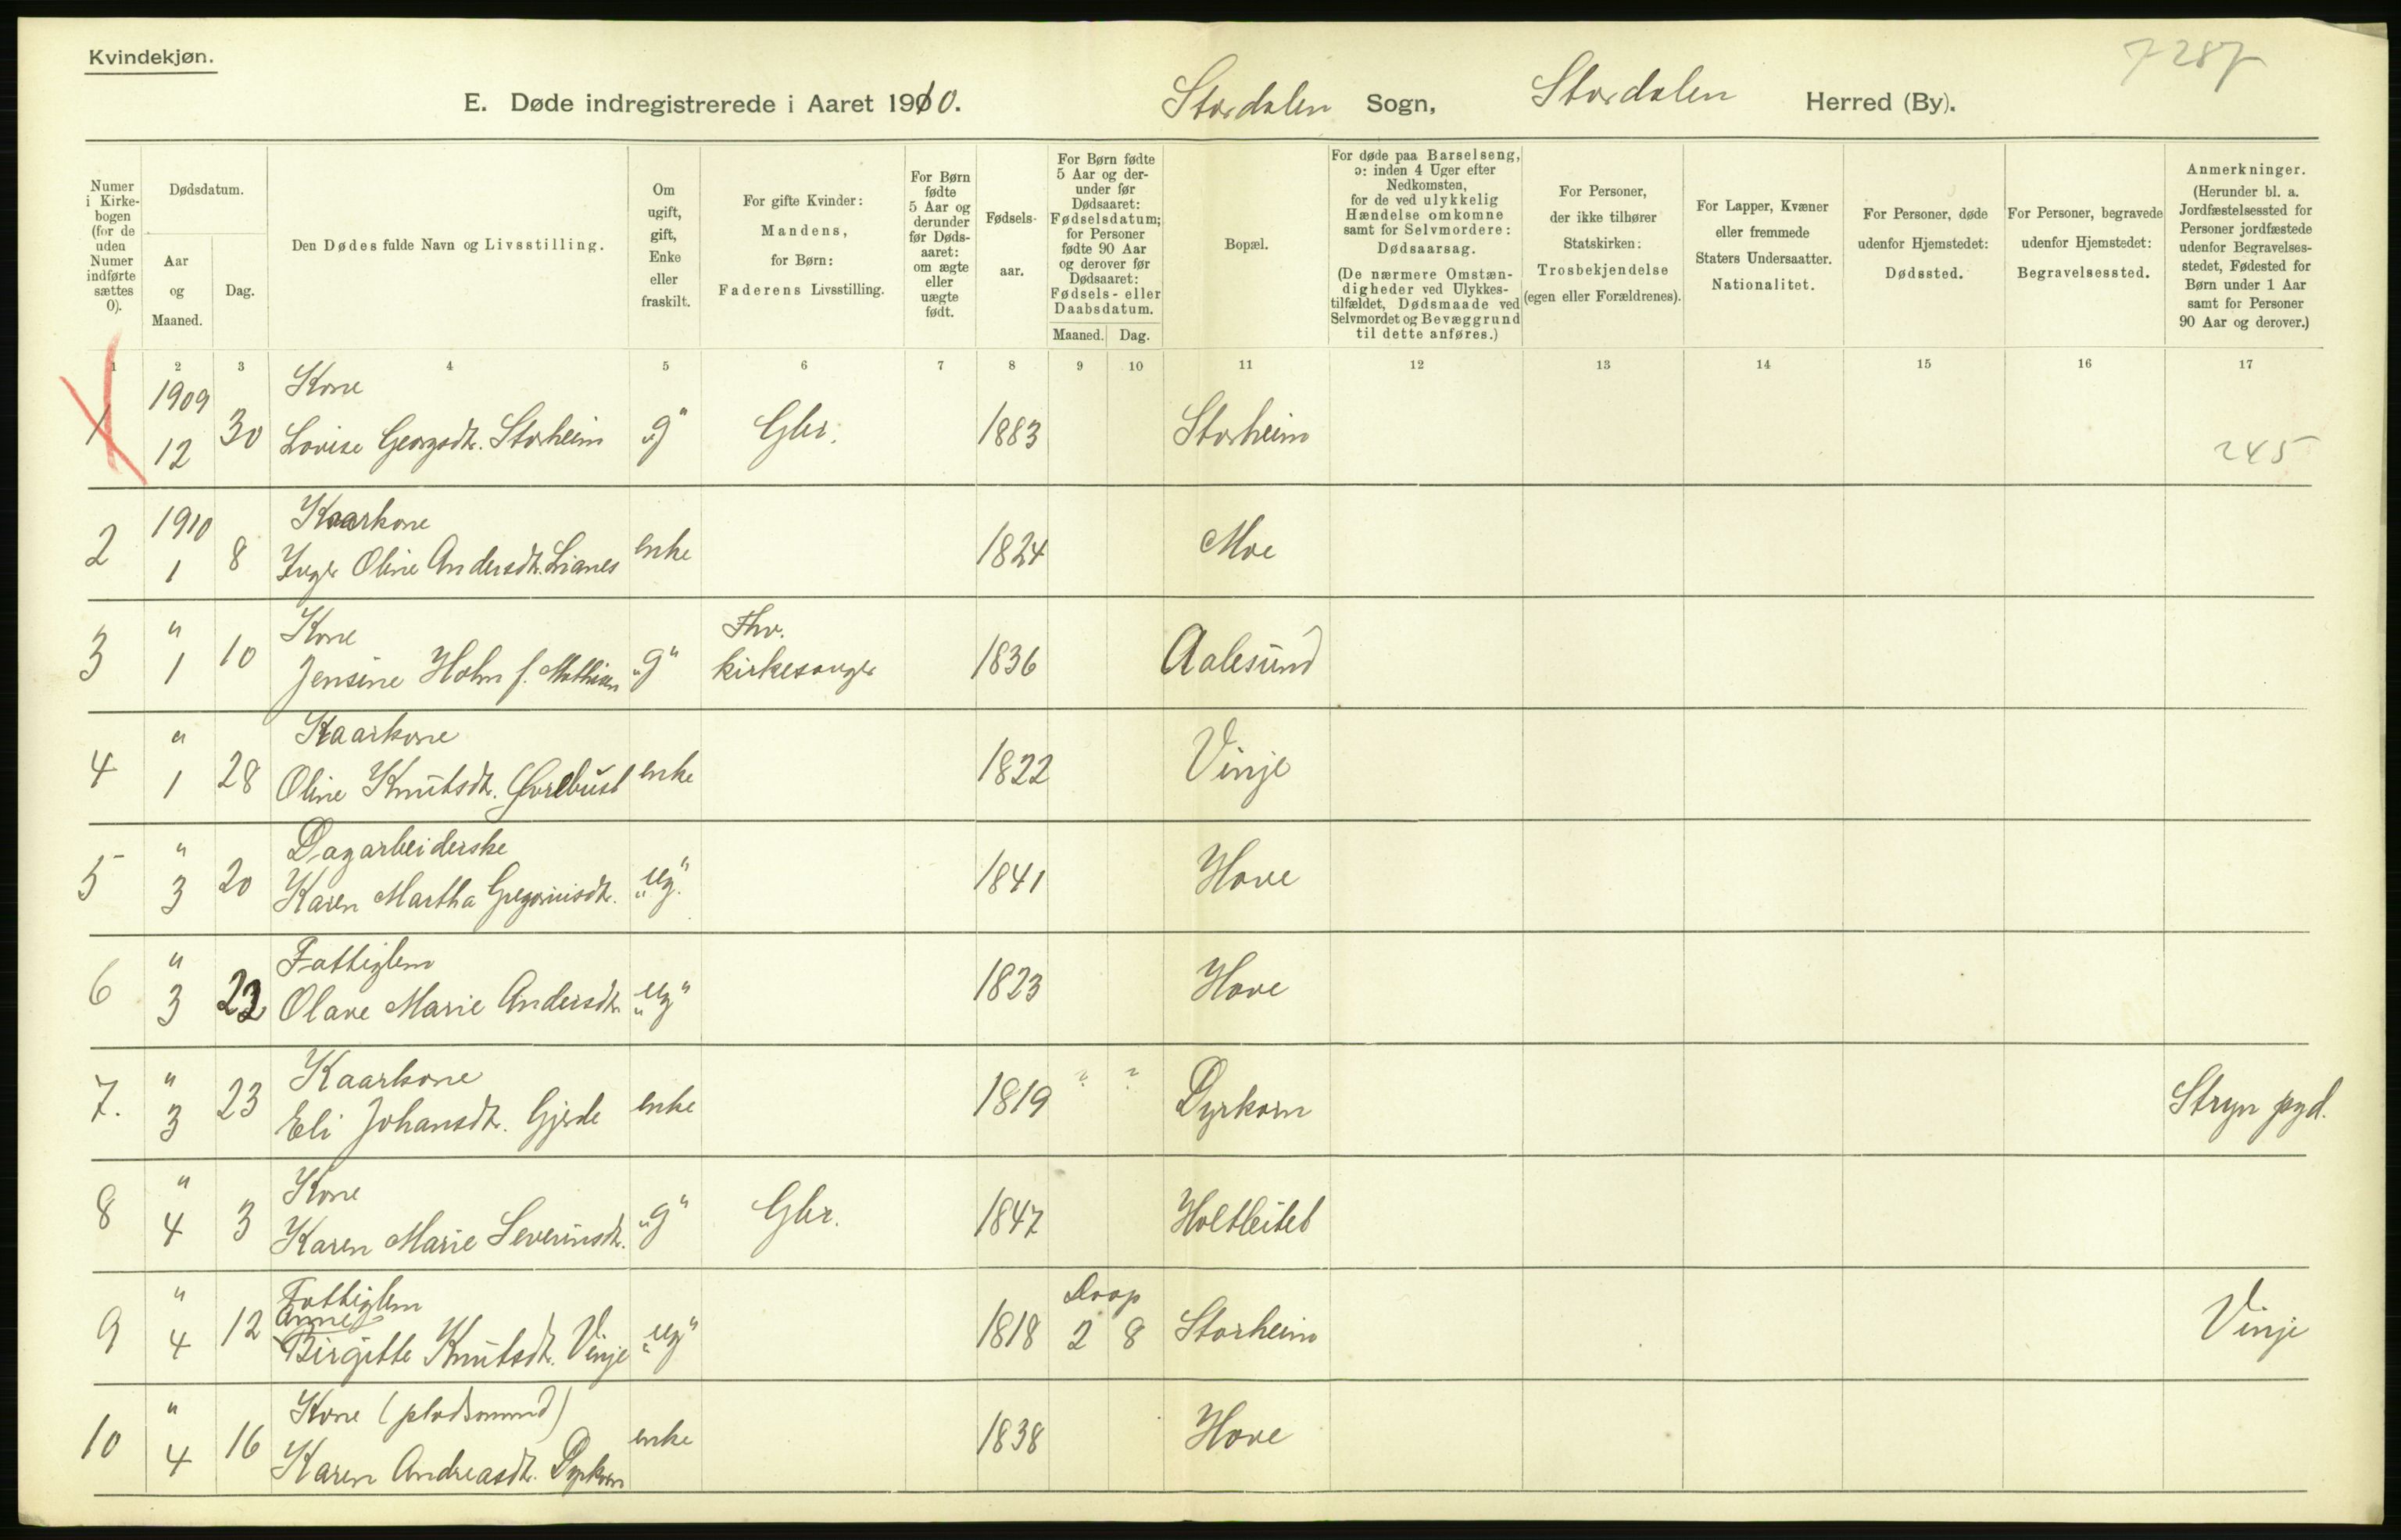 Kvindekjøn.
7287
E. Døde indregistrerede i Aaret 1910. Stordalen Sogn, Stordalen Herred (By).
Numer i Kirkebogen (for de uden Numer indførte sættes 0).
Dødsdatum.
Aar og Maaned.
Dag.
Den Dødes fulde Navn og Livsstilling.
Om ugift, gift, Enke eller fraskilt.
For gifte Kvinder: Mandens, for Børn: Faderens Livsstilling.
For Børn fødte 5 Aar og derunder før Dødsaaret: om ægte eller uægte født.
Fødselsaar.
For Børn fødte 5 Aar og derunder før Dødsaaret: Fødselsdatum; for Personer fødte 90 Aar og derover før Dødsaaret: Fødsels- eller Daabsdatum.
Maaned. Dag.
Bopæl.
For døde paa Barselseng, ɔ: inden 4 Uger efter Nedkomsten, for de ved ulykkelig Hændelse omkomne samt for Selvmordere: Dødsaarsag.
(De nærmere Omstændigheder ved Ulykkestilfældet, Dødsmaade ved Selvmordet og Bevæggrund til dette anføres.)
For Personer, der ikke tilhører Statskirken: Trosbekjendelse (egen eller Forældrenes).
For Lapper, Kvæner eller fremmede Staters Undersaatter. Nationalitet.
For Personer, døde udenfor Hjemstedet: Dødssted.
For Personer, begravede udenfor Hjemstedet: Begravelsessted.
Anmerkninger.
(Herunder bl. a. Jordfæstelsessted for Personer jordfæstede udenfor Begravelsesstedet, Fødested for Børn under 1 Aar samt for Personer 90 Aar og derover.)
1 2 3 4 5 6 7 8 9 10 11 12 13 14 15 16 17
1909 Kone
1 12 30 Lovise Georgsdtr. Storheim "g" Gbr. 1883 Storheim 245
1910 Kaarkone
2 1 8 Inger Oline Andersdtr. Lianes enke 1824 Moe
" Kone Fhv.
3 1 10 Jensine Holm f. Mathisen "g" kirkesanger 1836 Aalesund
" Kaarkone
4 1 28 Oline Knutsdtr. Øvrebust enke 1822 Vinje
" Dagarbeiderske
5 3 20 Karen Martha Gregoriusdtr. "ug." 1841 Hove
" Fattiglem
6 3 22 Olave Marie Andersdtr. "ug" 1823 Hove
" Kaarkone
7. 3 23 Eli Johansdtr. Gjerde enke 1819 ? ? Dyrkorn Stryn pgd.
" Kone
8 4 3 Karen Marie Severinsdtr. "g" Gbr. 1847 Holtleitet
" Fattiglem Daap
Anne
9 4 12 Birgitte Knutsdtr. Vinje "ug" 1818 2 8 Storheim Vinje
" Kone (pladsmand)
10 4 16 Karen Andreasdtr. Dyrkorn enke 1838 Hove